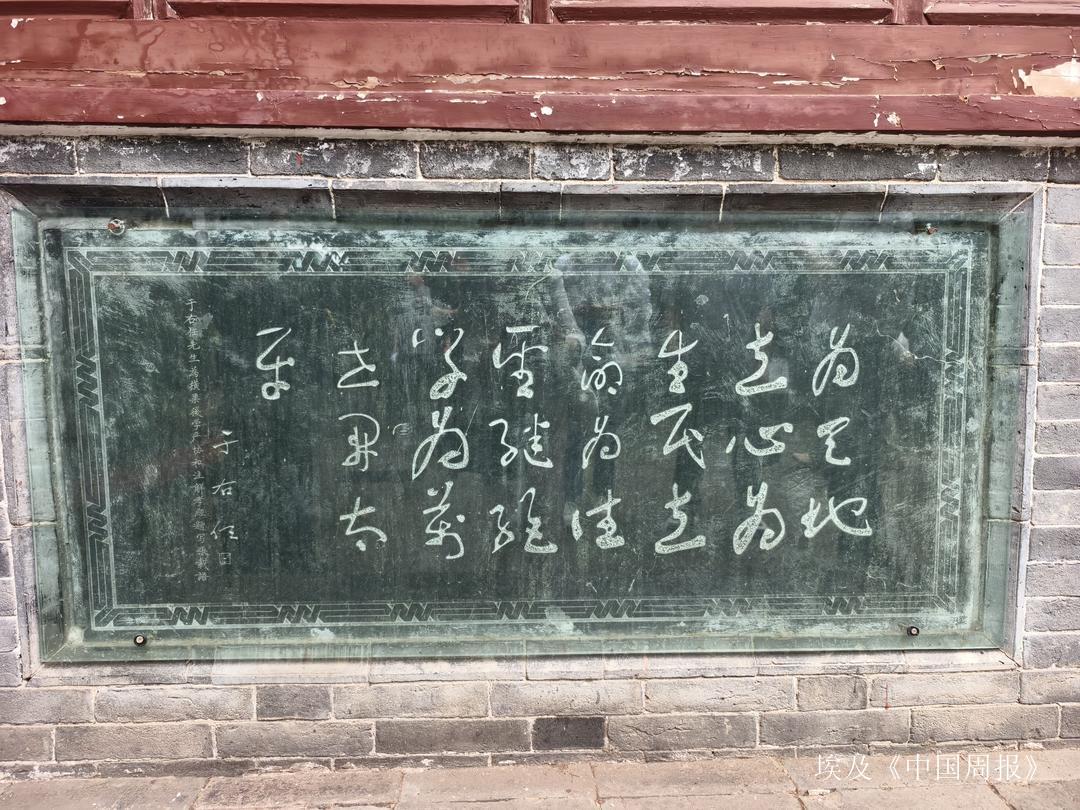 为天地
立心为
生民立
命为往
聖继絕
学为萬
世開太
平
于右任
于右任先生為横渠後学
埃及《中国周报》